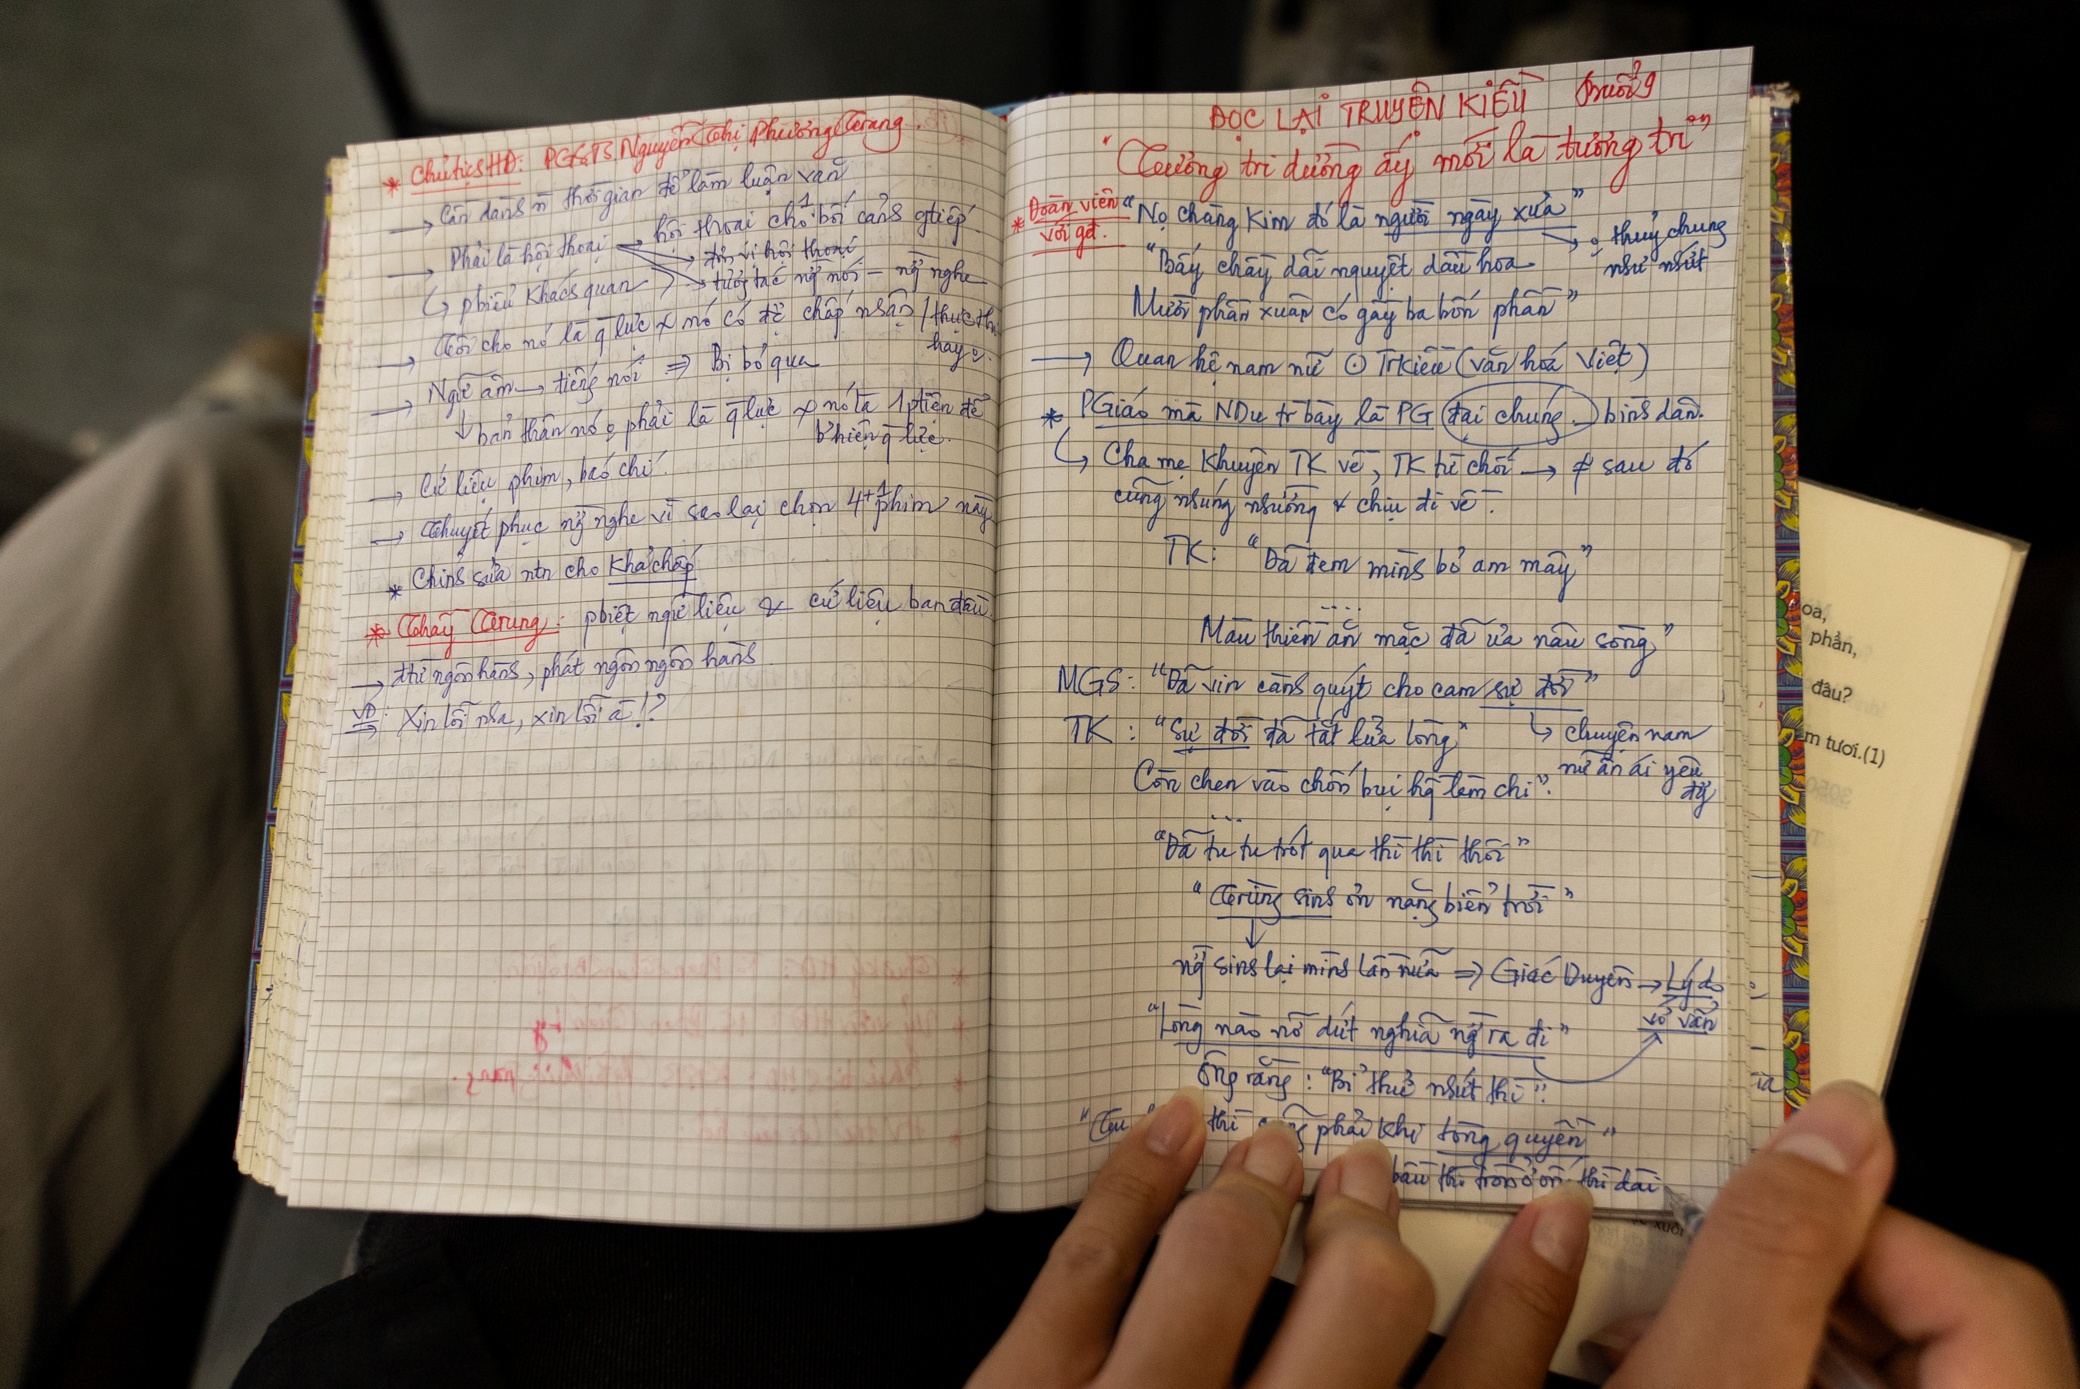 * Chủ tịch HĐ: PGS.TS Nguyễn Thị Phương Trang.
→ Cần dành n thời gian để làm luận văn
→ Phải là hội thoại → hội thoại cho 1 bối cảnh gtiếp
→ đơn vị hội thoại
→ tương tác ng nói – ng nghe
↳ phiếu khách quan
→ Tôi cho nó là q lực & nó có để chấp nhận / thực thi
hay 0.
→ Ngữ âm → tiếng nói ⇒ Bị bỏ qua
↓ bản thân nó 0 phải là q lực & nó là 1 ptiện để
b hiện q lực.
→ Cứ liệu phim, báo chí.
→ Thuyết phục ng nghe vì sao lại chọn 4+1 phim này
* Chỉnh sửa ntn cho khả chấp
* Thầy Trung: pbiệt ngữ liệu & cứ liệu ban đầu
→ từ ngôn hành, phát ngôn ngôn hành
VD: Xin lỗi nha, xin lỗi à!?
ĐỌC LẠI TRUYỆN KIỀU Buổi 9
"Tương tri dường ấy mới là tương tri"
* Đoàn viên với gđ.
"Nọ chàng Kim đó là người ngày xưa"
→ 0 thuỷ chung
như nhứt
"Bấy chầy dãi nguyệt dầu hoa
Mười phần xuân có gầy ba bốn phần"
→ Quan hệ nam nữ ⊙ TrKiều (văn hoá Việt)
* PGiáo mà NDu tr bày là PG đại chúng. bình dân.
↳ Cha mẹ khuyên TK về, TK từ chối → ≠ sau đó
cũng nhúng nhường & chịu đi về.
TK: "Đã đem mình bỏ am mây"
....
Màu thiền ăn mặc đã ưa nâu sồng"
MGS: "Đã vin cành quýt cho cam sự đời"
↳ chuyện nam
nữ ân ái yêu
đg
TK: "Sự đời đã tắt lửa lòng"
Còn chen vào chốn bụi hồng làm chi".
...
"Đã tu tu trót qua thì thì thôi"
"Trùng sinh ơn nặng biển trời"
↓
ng sinh lại mình lần nữa ⇒ Giác Duyên → Lý do
vớ vẩn
"Lòng nào nỡ dứt nghĩa ng ra đi"
Ông rằng: "Bỉ thử nhứt thì".
"Tu thì cũng phải khi tòng quyền"
bầu thì tròn ở ống thì dài
oa,
phần,
đâu?
m tươi.(1)